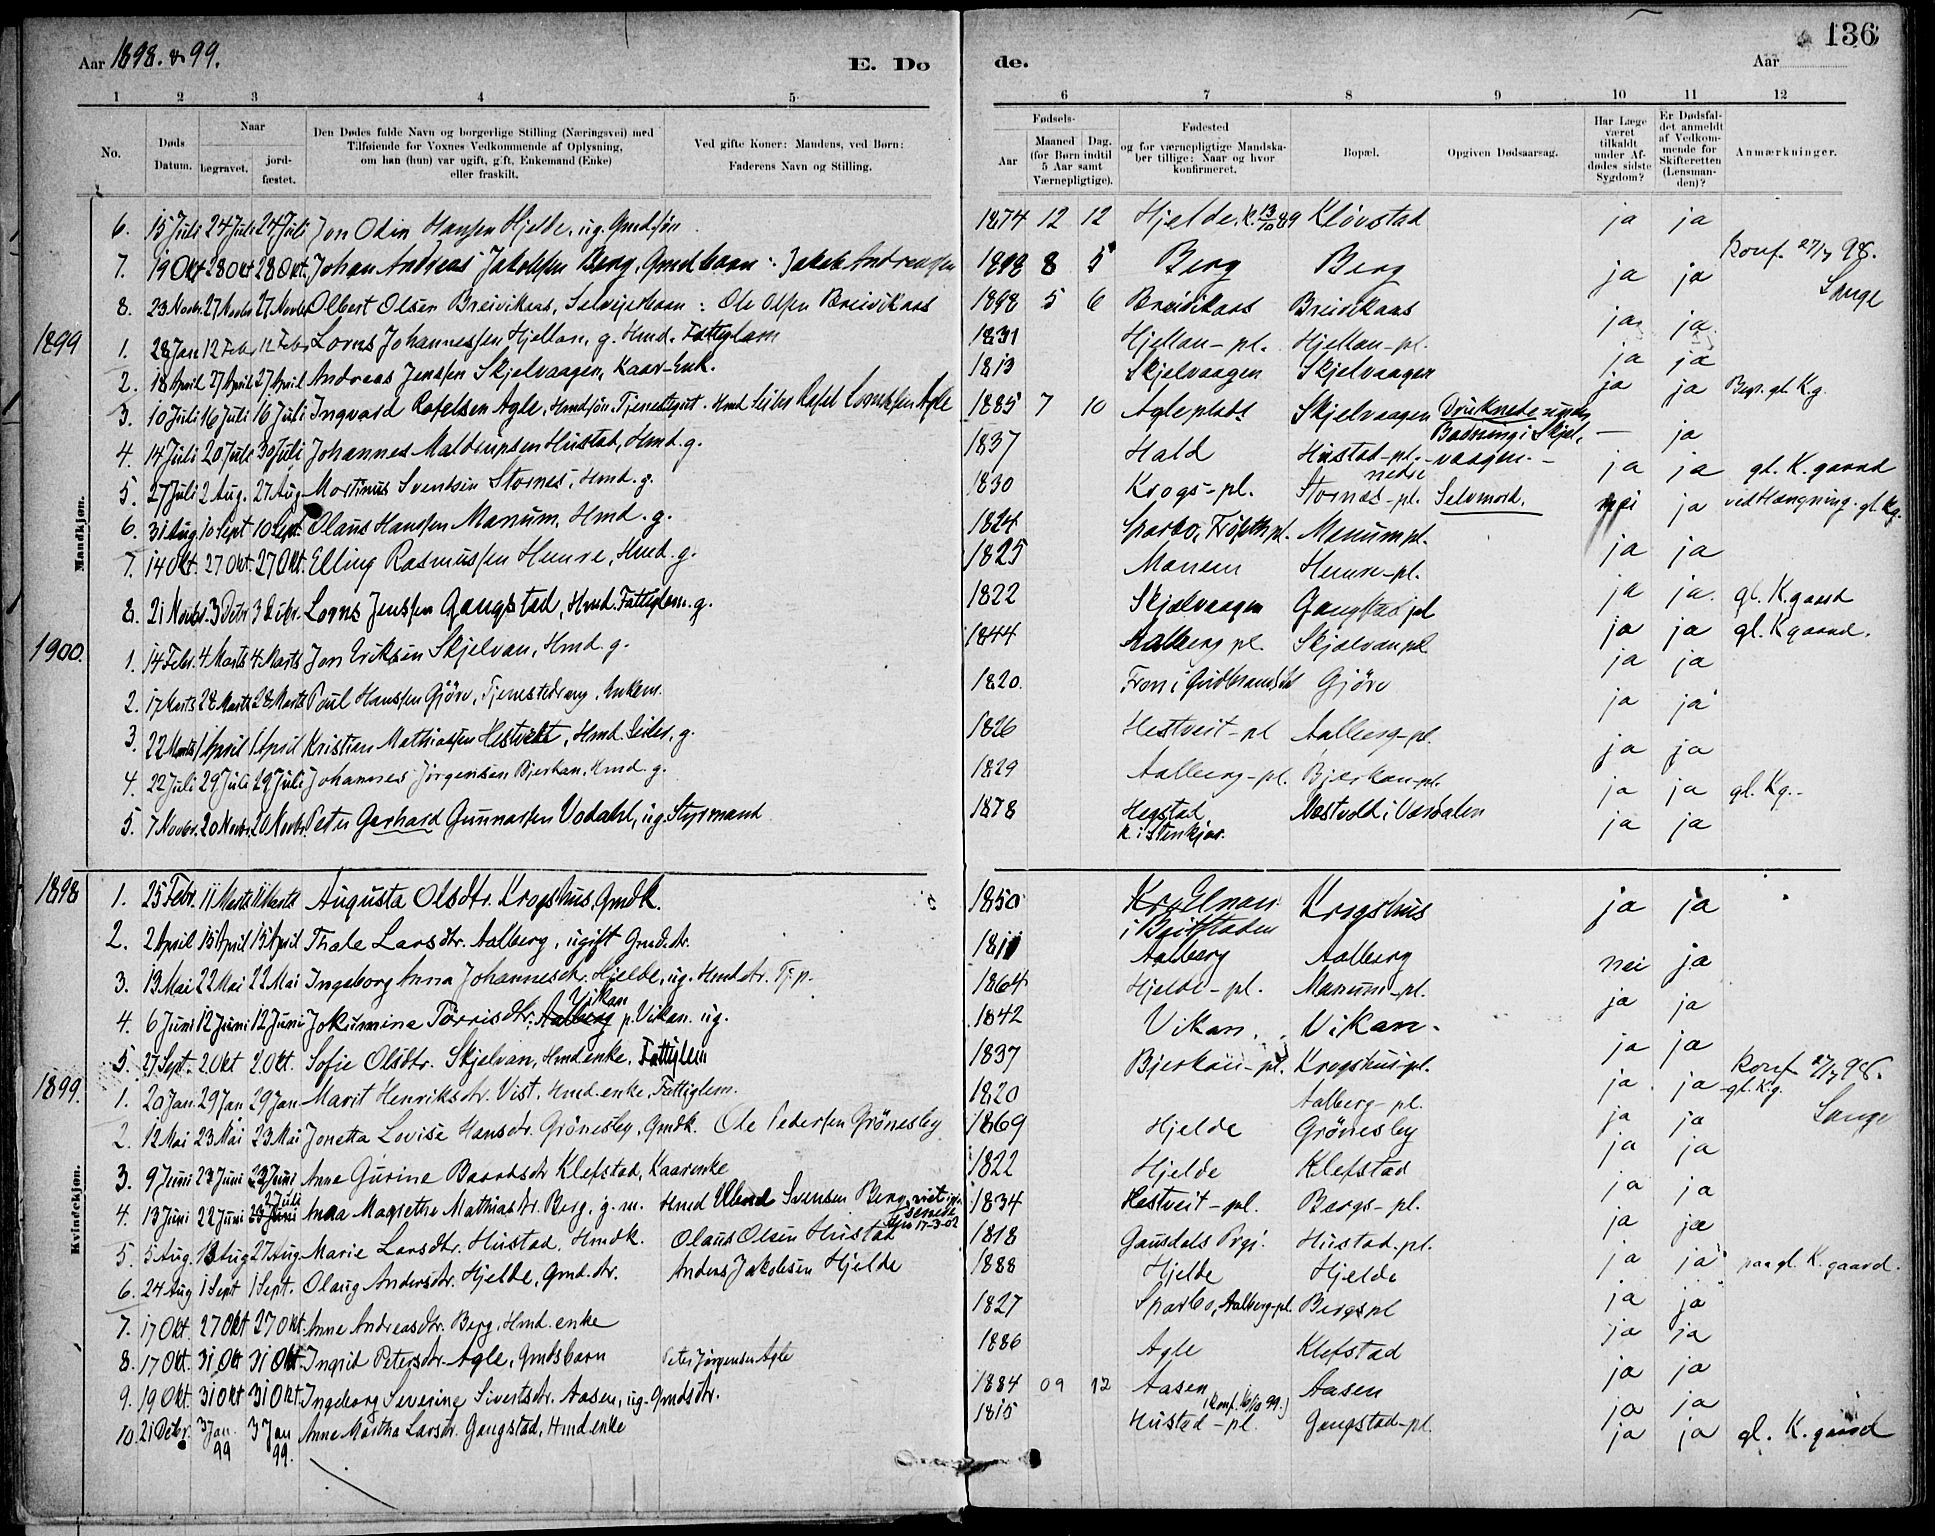 136
Aar 1898. & 99.
E. Døde.
Aar
1 2 3 4 5 6 7 8 9 10 11 12
No.
Døds Datum.
Naar
begravet.
jordfæstet.
Den Dødes fulde Navn og borgerlige Stilling (Næringsvei) med
Tilføiende for Voxnes Vedkommende af Oplysning,
om han (hun) var ugift, gift, Enkemand (Enke)
eller fraskilt.
Ved gifte Koner: Mandens, ved Børn:
Faderens Navn og Stilling.
Fødsels-
Aar
Maaned (for Børn indtil 5 Aar samt Værnepligtige).
Dag.
Fødested
og for værnepligtige Mandskaber tillige: Naar og hvor
konfirmeret.
Bopæl.
Opgiven Dødsaarsag.
Har Læge været tilkaldt under Afdødes sidste Sygdom?
Er Dødsfaldet anmeldt af Vedkommende for Skifteretten (Lensmanden)?
Anmærkninger.
Mandkjøn.
6. 15 Juli 24 Juli 24 Juli Jon Odin Hansen Hjelde, ug. Gmd.søn 1874 12 12 Hjelde, k. 13/10 89 Kløvstad ja ja
7. 19 Okt 28 Okt 28 Okt. Johan Andreas Jakobsen Berg, Gmdbarn : Jakob Andreassen 1898 8 5 Berg Berg ja ja
konf. 27/7 98.
Lange
8. 23 Novbr. 27 Novbr 27 Novbr Olbert Olsen Breivikaas, Selveierbarn : Ole Olsen Breivikaas 1898 5 6 Breivikaas Breivikaas ja ja
1899
1. 28 Jan 12 Febr 12 Febr Lorns Johannessen Hjellan, g. Hmd. Fattiglem 1831 Hjellan-pl. Hjellan-pl. ja ja
2. 18 April 27 April 27 April Andreas Jenssen Skjelvaagen, Kaar-Enk. 1813 Skjelvaagen Skjelvaagen ja ja Begr. gl. Kg.
3. 10 Juli 16 Juli 16 Juli Ingvard Rafelsen Agle, Hmdsøn Tjenestegut. Hmd Seiler Rafel Lorntsen Agle 1885 7 10 Agleplads Skjelvaagen Druknede under Badning i Skjelvaagen. — ja
4. 14 Juli 20 Juli 30 Juli Johannes Hustad, Hmd. g. 1837 Hald Hustad-pl. ja ja gl. K.gaard
5. 27 Juli 2 Aug. 27 Aug Mortinus Svendsen Stornes, Hmd. g. 1830 Krogs-pl. nedre Stornes-pl. Selvmord. nei ja ved Hængning. gl. Kg.
6. 31 Aug. 10 Sept 10 Sept. Olaus Hanssen Manum, Hmd. g. 1824 Sparbo, Manum pl. ja ja
7. 14 Okt. 27 Okt. 27 Okt. Elling Rasmussen Hemre, Hmd. g. 1825 Manem Hemre-pl. ja ja.
8. 21 Novbr. 3 Debr 3 Debr. Lorns Jenssen Gangstad, Hmd. Fattiglem. g. 1822 Skjelvaagen Gangstad pl ja ja gl. K.gaard
1900.
1. 14 Febr. 4 Marts 4 Marts Jon Eriksen Skjelvan, Hmd. g. 1844 Aalberg pl. Skjelvan pl ja ja gl. Kgaard.
2. 17 Marts 28 Marts 28 Marts Poul Hanssen Gjörv, Tjenestedreng, Enkem. 1820. Fron i Gudbrandsdal Gjörv ja ja
3. 22 Marts 1 April 1 April Kristian Mathiassen Hestveit, Hmd. Seiler, g. 1826 Hestveit-pl Aalberg-pl. ja ja
4. 22 Juli 29 Juli 29 Juli Johannes Jørgensen Bjerkan, Hmd. g. 1829 Aalberg-pl. Bjerkan-pl. ja ja gl. Kg.
5. 7 Novbr. 20 Novbr. 20 Novbr. Peter Gerhard Gunnarsen Vodahl, ug. Styrmand 1878 Hegstad k. i Stenkjær. Næstvold i Værdalen ja ja
Kvindekjøn.
1898
1. 25 Febr. 11 Marts 11 Marts Augusta Olsdtr. Krogshus, Gmdk. 1850 Elnan i Beitstaden Krogshus ja ja
2. 2 April 15 April 15 April Thale Larsdtr. Aalberg, ugift Gmd.dtr. 1811 Aalberg Aalberg nei ja
3. 13 Mai 22 Mai 22 Mai Ingeborg Anna Johannesdtr. Hjelde, ug. Hmd.dtr. Tj.p. 1864 Hjelde-pl. Manum-pl. ja ja
4. 6 Juni 12 Juni 12 Juni Jokumine Tørrisdtr. Aalberg Vikan p. Vikan. ug. 1842 Vikan. Vikan. ja ja
5. 27 Sept. 2 Okt 2 Okt. Sofie Olsdtr. Skjelvan, Hmdenke. Fattiglem 1837 Bjerkan-pl. Krogshus-pl. ja ja
konf 27/7 98.
Lange
1899.
1. 20 Jan. 29 Jan 29 Jan Marit Henriksdtr. Vist. Hmd.enke, Fattiglem. 1820 Aalberg-pl. ja ja gl. Kg.
2. 12 Mai 23 Mai 23 Mai Jonetta Lovise Hansdtr. Grönesby, Gmdk. Ole Pedersen Grönesby 1869 Hjelde Grönesby ja ja
3. 9 Juni 23 Juni 23 Juni Anne Gurine Baardsdtr Klefstad, Kaarenke 1822 Hjelde Klefstad ja ja
4. 13 Juni 22 Juni 23 Juni 2 Juli Anna Magrethe Mathiasdtr. Berg, g. m. Hmd Svensen Berg, 17-3-02 1834 Hestveit-pl. Bergs-pl. ja ja
5. 5 Aug. 13 Aug 27 Aug. Marie Larsdtr. Hustad, Hmdk. Olaus Olsen Hustad 1818 Gausdals Prgj. Hustad-pl. ja ja paa gl. K.gaard.
6. 24 Aug 1 Sept 1 Sept. Olaug Andersdtr. Hjelde, Gmd.dtr. Anders Jakobsen Hjelde 1888 Hjelde Hjelde ja ja
7. 17 Okt. 27 Okt 27 Okt. Anne Andreasdtr. Berg, Hmd. enke 1827 Sparbo, Aalberg-pl. Bergs pl ja ja
8. 17 Okt. 31 Okt 31 Okt. Ingrid Petersdtr. Agle, Gmdsbarn Peter Jørgensen Agle 1886 Agle Klefstad ja ja
9. 19 Okt 31 Okt 31 Okt. Ingeborg Severine Sivertsdtr. Aasen, ug. Gmdsdtr. 1884 09 12 Aasen (konf. 16/10 99.) Aasen ja ja
10. 21 Debr. 3 Jan. 99 3 Jan 99. Anne Martha Larsdtr. Gangstad, Hmdenke 1815 Hustad-pl. Gangstad-pl. ja ja gl. K.gaard